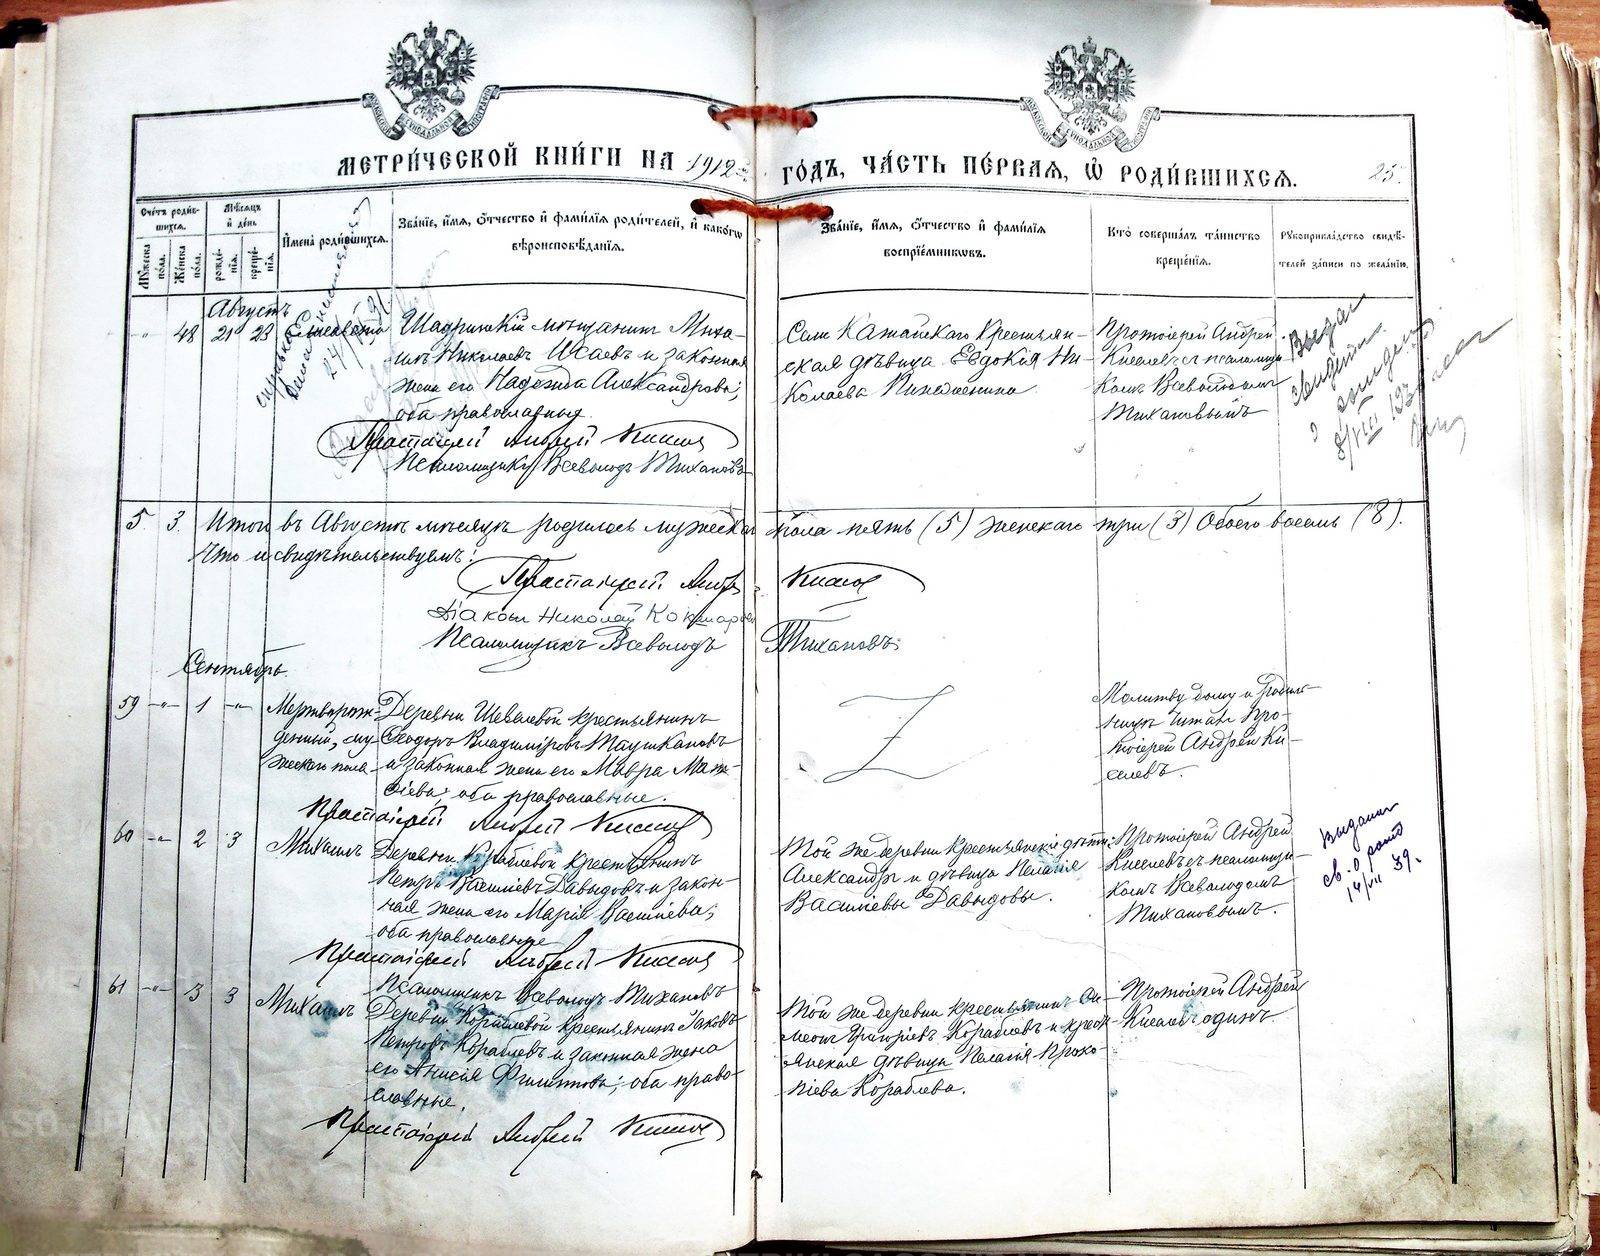 МЕТРИ́ЧЕСКОЙ КНИ́ГИ НА 1912 ГО́ДЪ, ЧА́СТЬ ПЕ́РВАЯ, Ѿ РОДИ́ВШИХСЯ. 25.
Сче́тъ роди́в-
шихся.
Мꙋжеска пола.
Же́нска пола.
Мѣ́сяцъ
и де́нь
рожде́-
нія.
креще́-
нія.
Имена̀ роди́вшихся.
Зва́ніе, и́мя, о́тчество и фами́лія роди́телей, и како́гѡ
вѣроисповѣ́данія.
Зва́ніе, и́мя, о́тчество и фами́лія
воспріе́мниковъ.
Кто̀ соверша́лъ та́инство
креще́нія.
Рꙋкоприкла́дство свидѣ́-
телей за́писи по жела́нію.
Августъ
48 21 23 Елисавета
Шадринскій мѣщанинъ Миха-
илъ Николаевъ Исаевъ и законная
жена его Надежда Александрова;
оба православные.
Протоіерей Андрей Киселевъ
Псаломщикъ Всеволодъ Тихановъ
Села Катайскаго крестьян-
ская дѣвица Евдокія Ни-
колаева
Протоіерей Андрей
Киселевъ съ псаломщи-
комъ Всеволодомъ
Тихановымъ
Выдан
8/VIII
5. 3. Итого въ Августѣ мѣсяцѣ родилось мужескаго пола пять (5) женскаго три (3) Обоего восемь (8).
Что и свидѣтельствуемъ:
Протоіерей Андрей Киселевъ
Діаконъ Николай
Псаломщикъ Всеволодъ Тихановъ
Сентябрь.
59 -"- 1 -"- Мертворож-
денный, му-
жескаго пола
Деревни Шевелевой крестьянинъ
Ѳеодоръ Владиміровъ Таушкановъ
и законная жена его Мавра Мат-
ѳіева; оба православные.
Протоіерей Андрей Киселевъ
Молитву дому и родиль-
ницѣ читалъ Про-
тоіерей Андрей Ки-
селевъ.
60 -"- 2 3 Михаилъ
Деревни Кораблевой крестьянинъ
Петръ Васильевъ Давыдовъ и закон-
ная жена его Марія Васильева;
оба православные
Протоіерей Андрей Киселевъ
Псаломщикъ Всеволодъ Тихановъ
Той же деревни крестьянскія дѣти:
Александръ и дѣвица Пелагія
Васильевы Давыдовы.
Протоіерей Андрей
Киселевъ съ псаломщи-
комъ Всеволодомъ
Тихановымъ.
Выдано
св. о рожд
14/VII 39.
61 -"- 3 3 Михаилъ
Деревни Кораблевой крестьянинъ Іаковъ
Петровъ Кораблевъ и законная жена
его Анисія Филиппова; оба право-
славные.
Протоіерей Андрей Киселевъ
Той же деревни крестьянинъ Си-
меонъ Григорьевъ Кораблевъ и крест-
янская дѣвица Пелагія Проко-
піева Кораблева.
Протоіерей Андрей
Киселевъ одинъ.